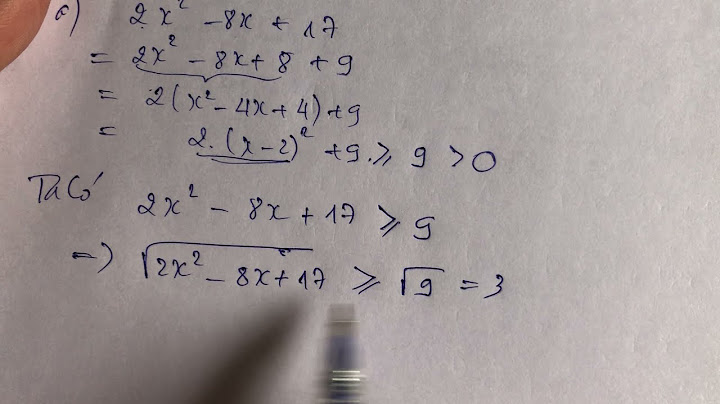 c) 2x² - 8x + 17
= 2x² - 8x + 8 + 9
= 2(x² - 4x + 4) + 9
= 2.(x - 2)² + 9 ⩾ 9 > 0
Ta Có
2x² - 8x + 17 ⩾ 9
=) √2x² - 8x + 17 ⩾ √9 = 3